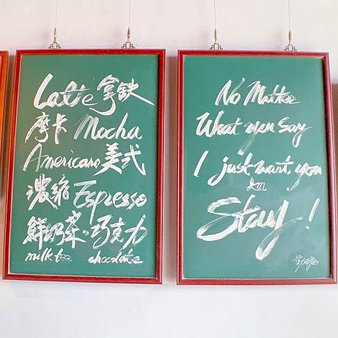 Latte 拿鉄
摩卡 Mocha
Americano 美式
濃縮 Espresso
鮮奶茶 巧克力
milk tea chocolate
No Matter
What you say
I just want you
to
Stay!